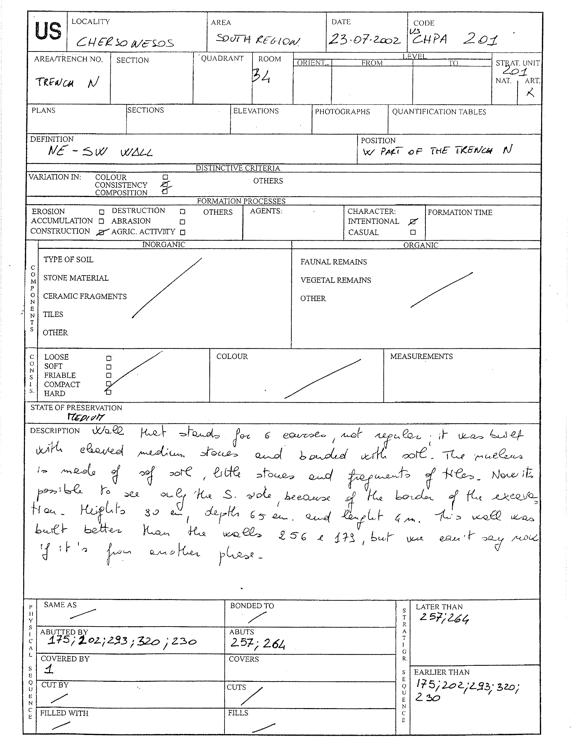 US
LOCALITY
CHERSONESOS
AREA
SOUTH REGION
DATE
23-07-2002
CODE
US
CHPA 201
AREA/TRENCH NO.
TRENCH N
SECTION
QUADRANT
ROOM
34
LEVEL
ORIENT. FROM TO
STRAT. UNIT
201
NAT. ART.
X
PLANS
SECTIONS
ELEVATIONS
PHOTOGRAPHS
QUANTIFICATION TABLES
DEFINITION
NE-SW WALL
POSITION
W PART OF THE TRENCH N
DISTINCTIVE CRITERIA
VARIATION IN: COLOUR
CONSISTENCY
COMPOSITION
OTHERS
FORMATION PROCESSES
EROSION DESTRUCTION OTHERS
ACCUMULATION ABRASION
CONSTRUCTION AGRIC. ACTIVITY
AGENTS:
CHARACTER:
INTENTIONAL
CASUAL
FORMATION TIME
COMPONENTS
INORGANIC
TYPE OF SOIL
STONE MATERIAL
CERAMIC FRAGMENTS
TILES
OTHER
ORGANIC
FAUNAL REMAINS
VEGETAL REMAINS
OTHER
CONSIS.
LOOSE
SOFT
FRIABLE
COMPACT
HARD
COLOUR
MEASUREMENTS
STATE OF PRESERVATION
MEDIUM
DESCRIPTION Wall that stands for 6 courses, not regular; it was built
with cleaved medium stones and bonded with soil. The nucleus
is made of soil, little stones and fragments of tiles. Now its
possible to see only the S. side, because of the border of the excava-
tion. Heights 30 cm, depths 65 cm. and lenght 4 m. This wall was
built better than the walls 256 e 173, but we can't say now
if it's from another phase.
PHYSICAL SEQUENCE
SAME AS
BONDED TO
ABUTTED BY
175; 202; 293; 320; 230
ABUTS
257; 264
COVERED BY
1
COVERS
CUT BY
CUTS
FILLED WITH
FILLS
STRATIGR. SEQUENCE
LATER THAN
257; 264
EARLIER THAN
175; 202; 293; 320;
230